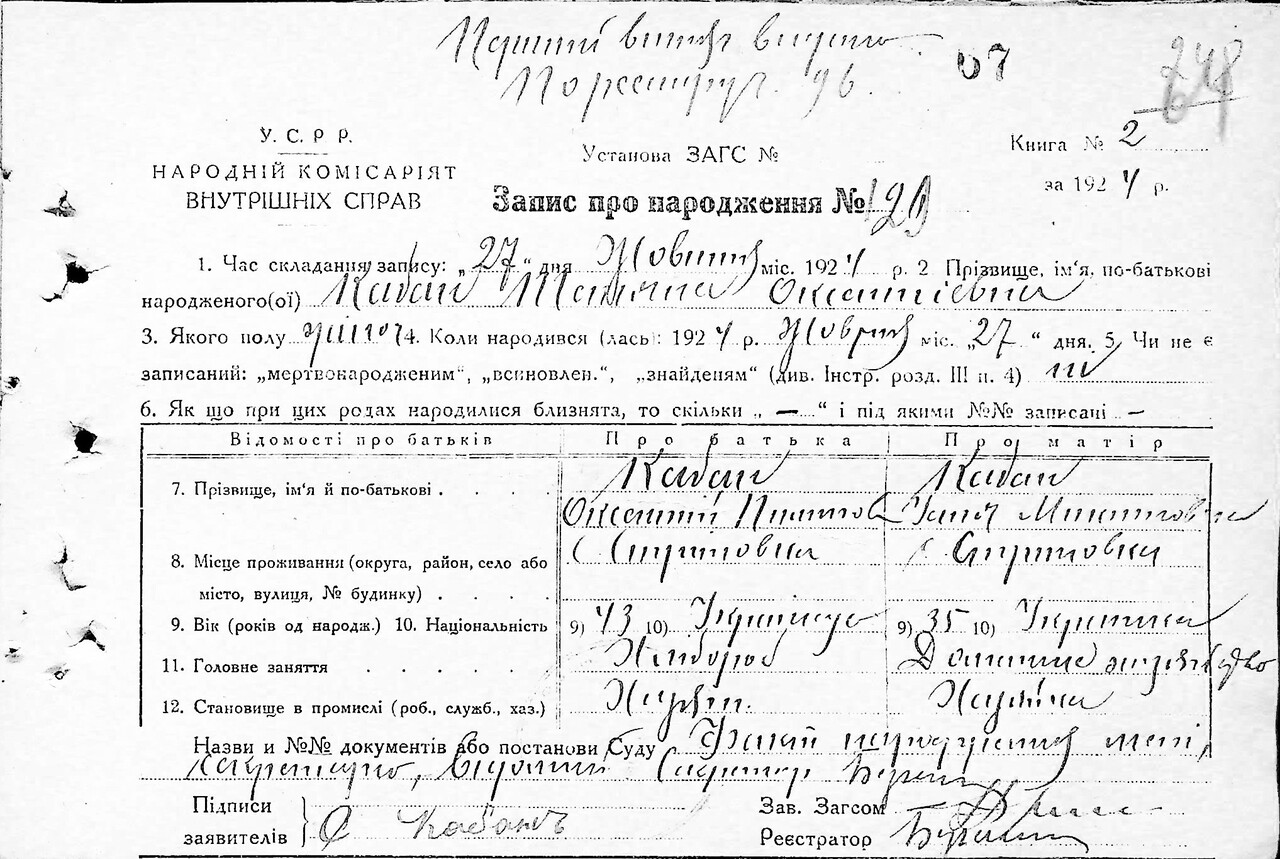 Перший витяг видано
07
248
У. С. Р. Р.
НАРОДНІЙ КОМІСАРІЯТ
ВНУТРІШНІХ СПРАВ
Установа ЗАГС №
Книга № 2
за 1924 р.
Запис про народження № 120
1. Час складання запису: „27" дня Жовтня міс. 1924 р. 2 Прізвище, ім'я, по-батькові
народженого(ої) Кабан Тетяна Оксентіевна
3. Якого полу жіноч 4. Коли народився (лась): 1924 р. Жовтня міс. „27" дня. 5. Чи не є
записаний: „мертвонародженим", „всиновлен.", „знайденям" (див. Інстр. розд. III п. 4) ні
6. Як що при цих родах народилися близнята, то скільки „ — " і під якими №№ записані —
Відомості про батьків Про батька Про матір
7. Прізвище, ім'я й по-батькові . . . . Кабан Кабан
Оксентій Микитовна
8. Місце проживання (округа, район, село або с Стритовка с Стритовка
місто, вулиця, № будинку) . . . .
9. Вік (років од народж.) 10. Національність 9) 43 10) Українець 9) 35 10) Українка
11. Головне заняття . . . . . Хлібороб Домашнє
12. Становище в промислі (роб., служб., хаз.) Хазяїн. Хазяйка
Назви и №№ документів або постанови Суду Факт народження мені,
секретарю, відомий Секретар
Підписи
заявителів Кабанъ
Зав. Загсом
Реєстратор